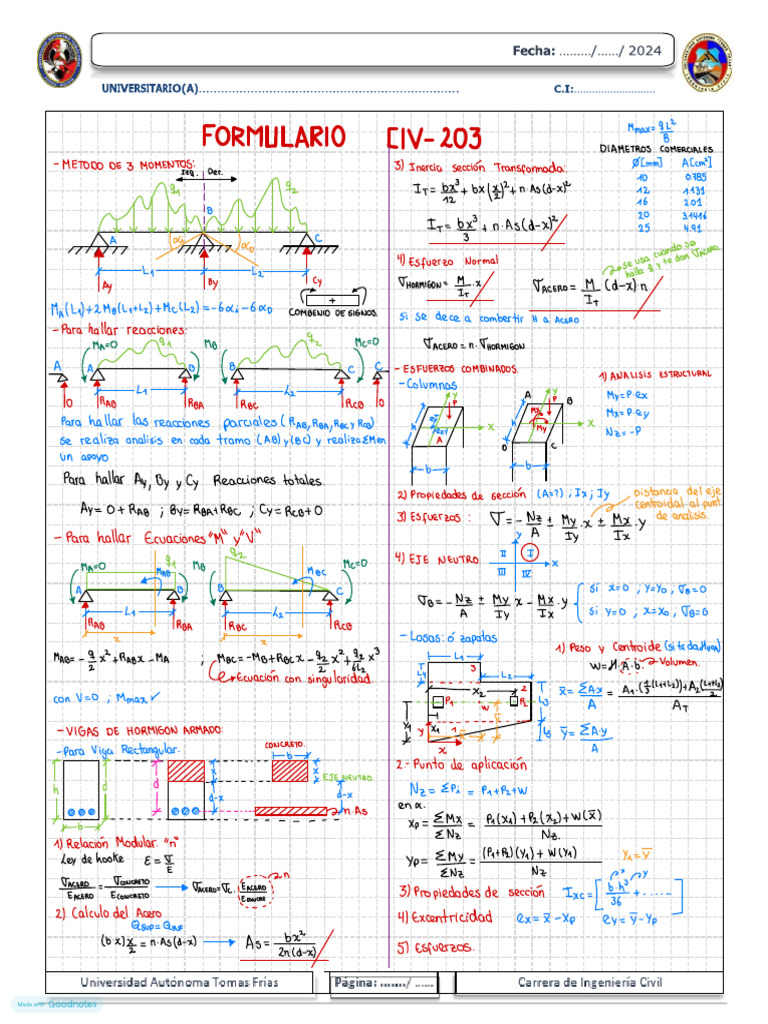 Fecha: ........./....../ 2024
UNIVERSITARIO(A)............................................................
C.I:...........................
FORMULARIO CIV-203
Mmax = qL²/8
DIAMETROS COMERCIALES
Ø[mm] A[cm²]
10 0.785
12 1.131
16 2.01
20 3.1416
25 4.91
- METODO DE 3 MOMENTOS:
Izq. Der.
q1 q2
A B C
αi αD
L1 L2
Ay By Cy
MA(L1)+2MB(L1+L2)+MC(L2)=-6αi-6αD
+
COMBENIO DE SIGNOS.
- Para hallar reacciones:
MA=0 q1 MB q2 MC=0
A A B B C C
L1 L2
0 RBA RBA RBC RCB 0
Para hallar las reacciones parciales (RAB, RBA, RBC y RCB)
se realiza analisis en cada tramo (AB) y (BC) y realiza ΣM en
un apoyo
Para hallar Ay, By y Cy Reacciones totales.
Ay = 0+RAB ; By = RBA+RBC ; Cy = RCB+0
- Para hallar Ecuaciones "M" y "V"
MA=0 q1 MAB MB q2 MBC MC=0
A B B C
L1 L2
RAB RBA RBC RCB
x x
MAB = -q/2 x² + RABx - MA ; MBC = -MB + RBCx - q2/2 x² + q2/6L2 x³
Ecuación con singularidad.
con V=0 ; Mmax ✓
- VIGAS DE HORMIGON ARMADO:
- Para Viga Rectangular.
CONCRETO.
b
h d d x d-x x d-x
EJE NEUTRO
n.As
b
1) Relación Modular "n"
Ley de hooke ε = σ/E
σACERO/EACERO = σCONCRETO/ECONCRETO → σACERO = σC . EACERO/ECONCRE
n
2) Calculo del Acero
(b.x)x/2 = n.As(d-x) → As = bx²/2n(d-x)
3) Inercia sección Transformada:
IT = bx³/12 + bx(x/2)² + n.As(d-x)²
IT = bx³/3 + n.As(d-x)²
4) Esfuerzo Normal
se usa cuando se
σHORMIGON = M/IT . x
σACERO = M/IT (d-x).n
si se dece a combertir H a ACERO
σACERO = n.σHORMIGON
- ESFUERZOS COMBINADOS.
- Columnas
1) ANALISIS ESTRUCTURAL
My = P.ex
Mx = P.ey
Nz = -P
y P x h A b
A y P B Mx My x h D C b
2) Propiedades de sección (A=?) ; Ix ; Iy
Distancia del eje
centroidal al punt.
de analisis.
3) Esfuerzos : σ = - Nz/A ± My/Iy . x ± Mx/Ix . y
4) EJE NEUTRO
y
II I
x
III IV
σB = - Nz/A ± My/Iy x - Mx/Ix . y
si x=0 , y=yo , σB=0
si y=0 , x=xo , σB=0
- Losas: ó zapatas
L1 L2
3 2 1
x2 w P1 P2
y1 x1 x y
1) Peso y Centroide
Volumen.
x̄ = ΣAx/A
ȳ = ΣA.y/A
2.- Punto de aplicación
Nz = ΣPi = P1+P2+W
en α.
xp = ΣMx/ΣNz = P1(x1)+P2(x2)+W(x̄)/Nz.
yp = ΣMy/ΣNz = (P1+P2)(y1)+W(y1)/Nz
y1=ȳ
3) Propiedades de sección
x y
Ixc = [b.h³/36 + ......]
4) Excentricidad ex = x̄ - xp ey = ȳ - yp
5) Esfuerzos.
Universidad Autónoma Tomas Frías
Página: ......./ ......
Carrera de Ingeniería Civil
Made with Goodnotes